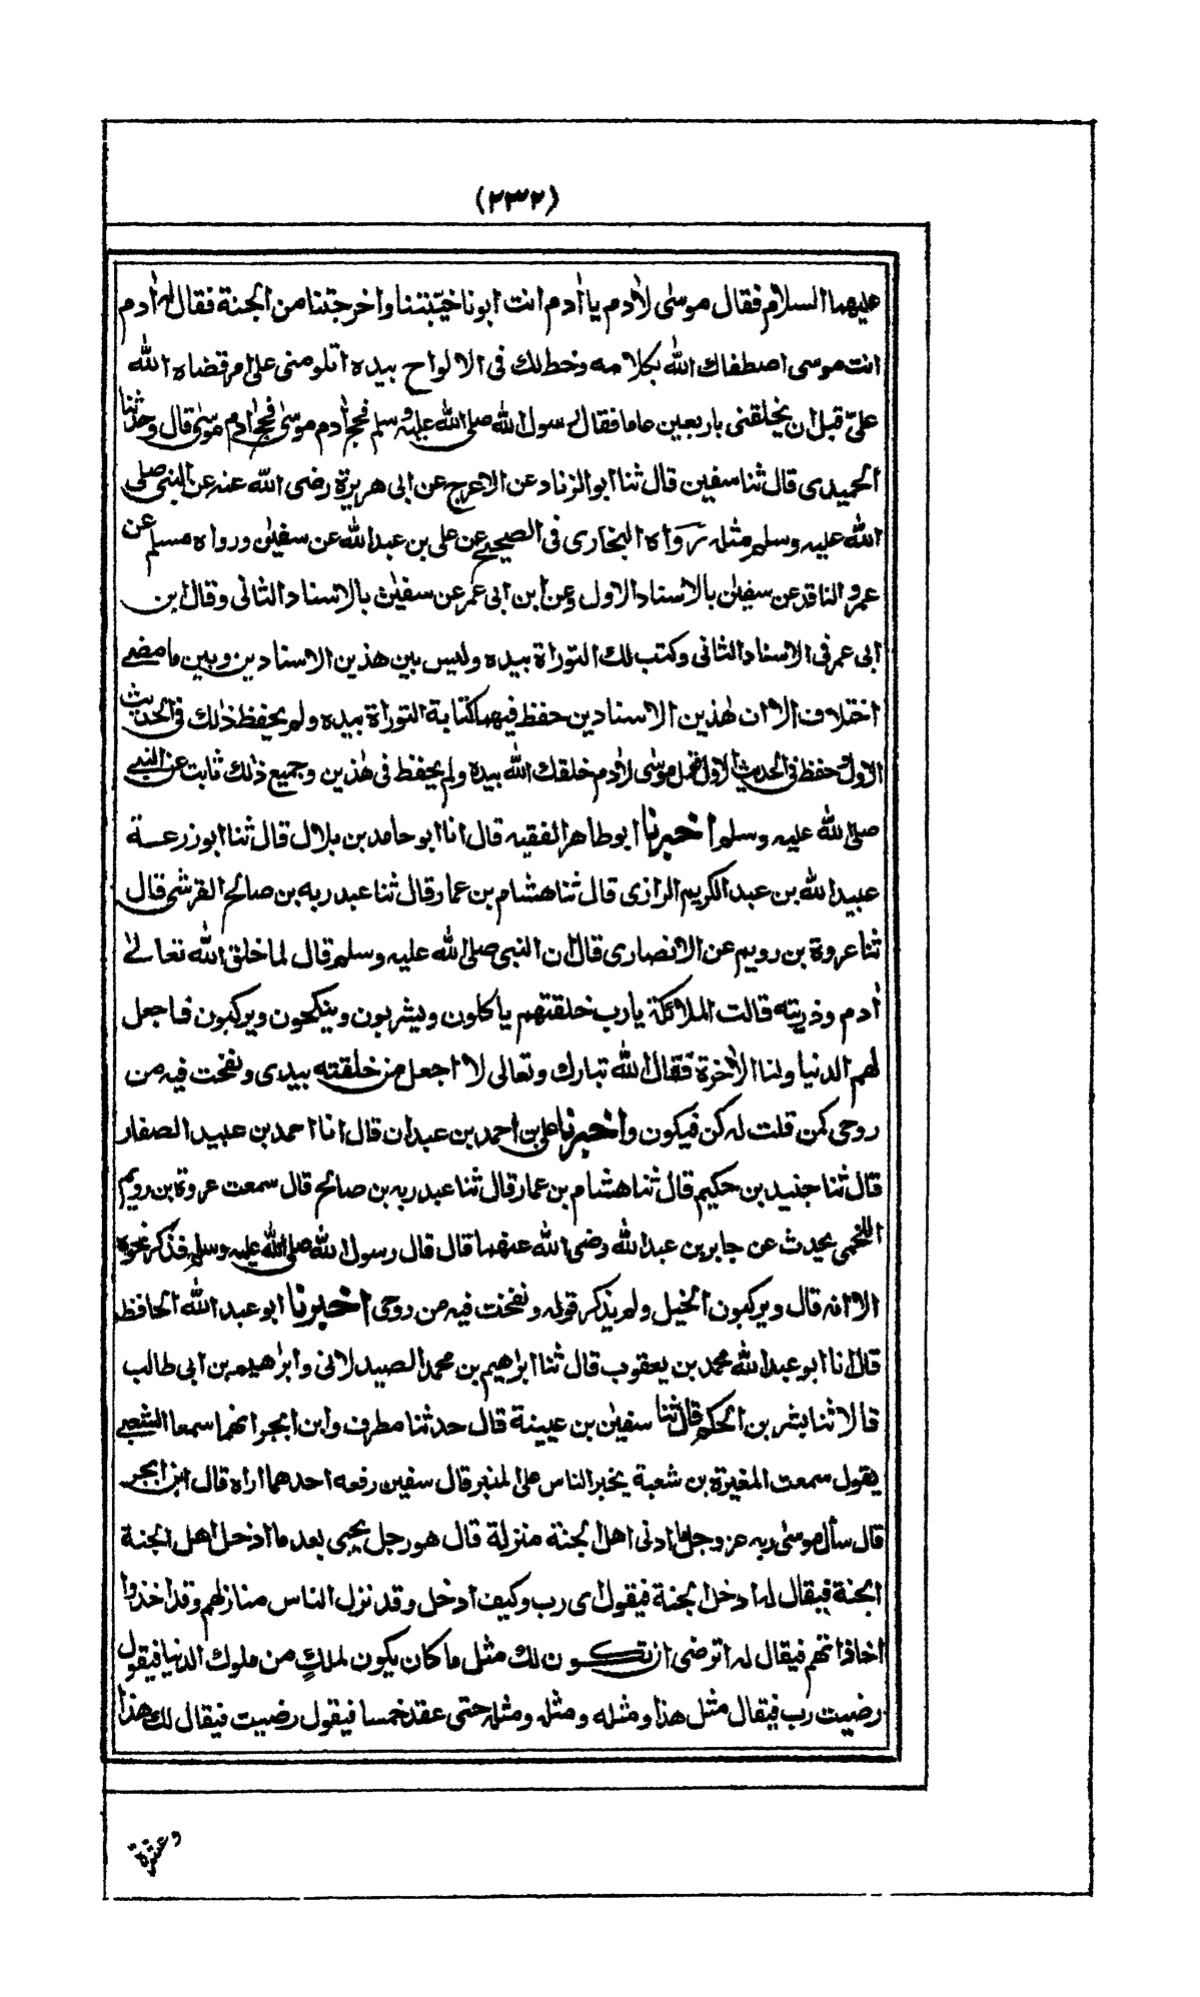 (٢٣٢)
عليهما السلام فقال موسى لاٰدم يا اٰدم انت ابونا خيّبتنا واخرجتنا من الجنة فقال له اٰدم
انت موسى اصطفاك الله بكلامه وخط لك فى الالواح بيده اتلومنى على امر قضاه الله
علىّ قبل ان يخلقنى باربعين عاما فقال رسول الله صلى الله عليه وسلم فحج اٰدم موسىٰ فحج اٰدم موسىٰ قال وحدثنا
الحميدى قال ثنا سفين قال ثنا ابوالزناد عن الاعرج عن ابى هريرة رضى الله عنه عن النبى صلى
الله عليه وسلم مثله رواه البخارى فى الصحيح عن على بن عبدالله عن سفيٰن ورواه مسلم عن
عمرو الناقد عن سفيٰن بالاسناد الاول وعن ابن ابى عمر عن سفيٰن بالاسناد الثانى وقال ابن
ابى عمر فى الاسناد الثانى وكتب لك التوراة بيده وليس بين هذين الاسنادين وبين ما مضے
اختلاف الا ان هٰذين الاسنادين حفظ فيهما كتابة التوراة بيده ولم يحفظ ذٰلك فى الحديث
الاول وحفظ فى الحديث الاول قول موسىٰ لاٰدم خلقك الله بيده ولم يحفظ فى هٰذين وجميع ذٰلك ثابت عن النبے
صلى الله عليه وسلم اخبرنا ابوطاهر الفقيه قال انا ابوحامد بن بلال قال ثنا ابوزرعة
عبيدالله بن عبدالكريم الرازى قال ثنا هشام بن عمار قال ثنا عبد ربه بن صالح القرشى قال
ثنا عروة بن رويم عن الانصارى قال ان النبى صلى الله عليه وسلم قال لما خلق الله تعالىٰ
اٰدم وذريته قالت الملائكة يارب خلقتهم ياكلون ويشربون وينكحون ويركبون فاجعل
لهم الدنيا ولنا الاٰخرة فقال الله تبارك وتعالى لا اجعل من خلقته بيدى ونفخت فيه من
روحى كمن قلت له كن فيكون واخبرنا على بن احمد بن عبدان قال انا احمد بن عبيد الصفار
قال ثنا جنيد بن حكيم قال ثنا هشام بن عمار قال ثنا عبد ربه بن صالح قال سمعت عروة بن رويم
اللخمى يحدث عن جابر بن عبدالله رضى الله عنهما قال قال رسول الله صلى الله عليه وسلم فذكر نحوه
الا انه قال ويركبون الخيل ولم يذكر قوله ونفخت فيه من روحى اخبرنا ابوعبدالله الحافظ
قال انا ابوعبدالله محمد بن يعقوب قال ثنا ابراهيم بن محمد الصيدلانى وابراهيم بن ابى طالب
قالا ثنا بشر بن الحكم قال ثنا سفيٰن بن عيينة قال حدثنا مطرف وابن ابجر انهما سمعا الشعبے
يقول سمعت المغيرة بن شعبة يخبر الناس على المنبر قال سفين رفعه احدهما اراه قال ابن ابجر
قال سأل موسىٰ ربه عزوجل ما ادنى اهل الجنة منزلة قال هو رجل يجيى بعد ما ادخل اهل الجنة
الجنة فيقال له ادخل الجنة فيقول اى رب وكيف ادخل وقد نزل الناس منازلهم وقد اخذوا
اخاذاتهم فيقال له اترضى ان تكون لك مثل ما كان يكون لملكٍ من ملوك الدنيا فيقول
رضيت رب فيقال مثل هذا ومثله ومثله ومثله حتى عقد خمسا فيقول رضيت فيقال لك هذا
وعشرة